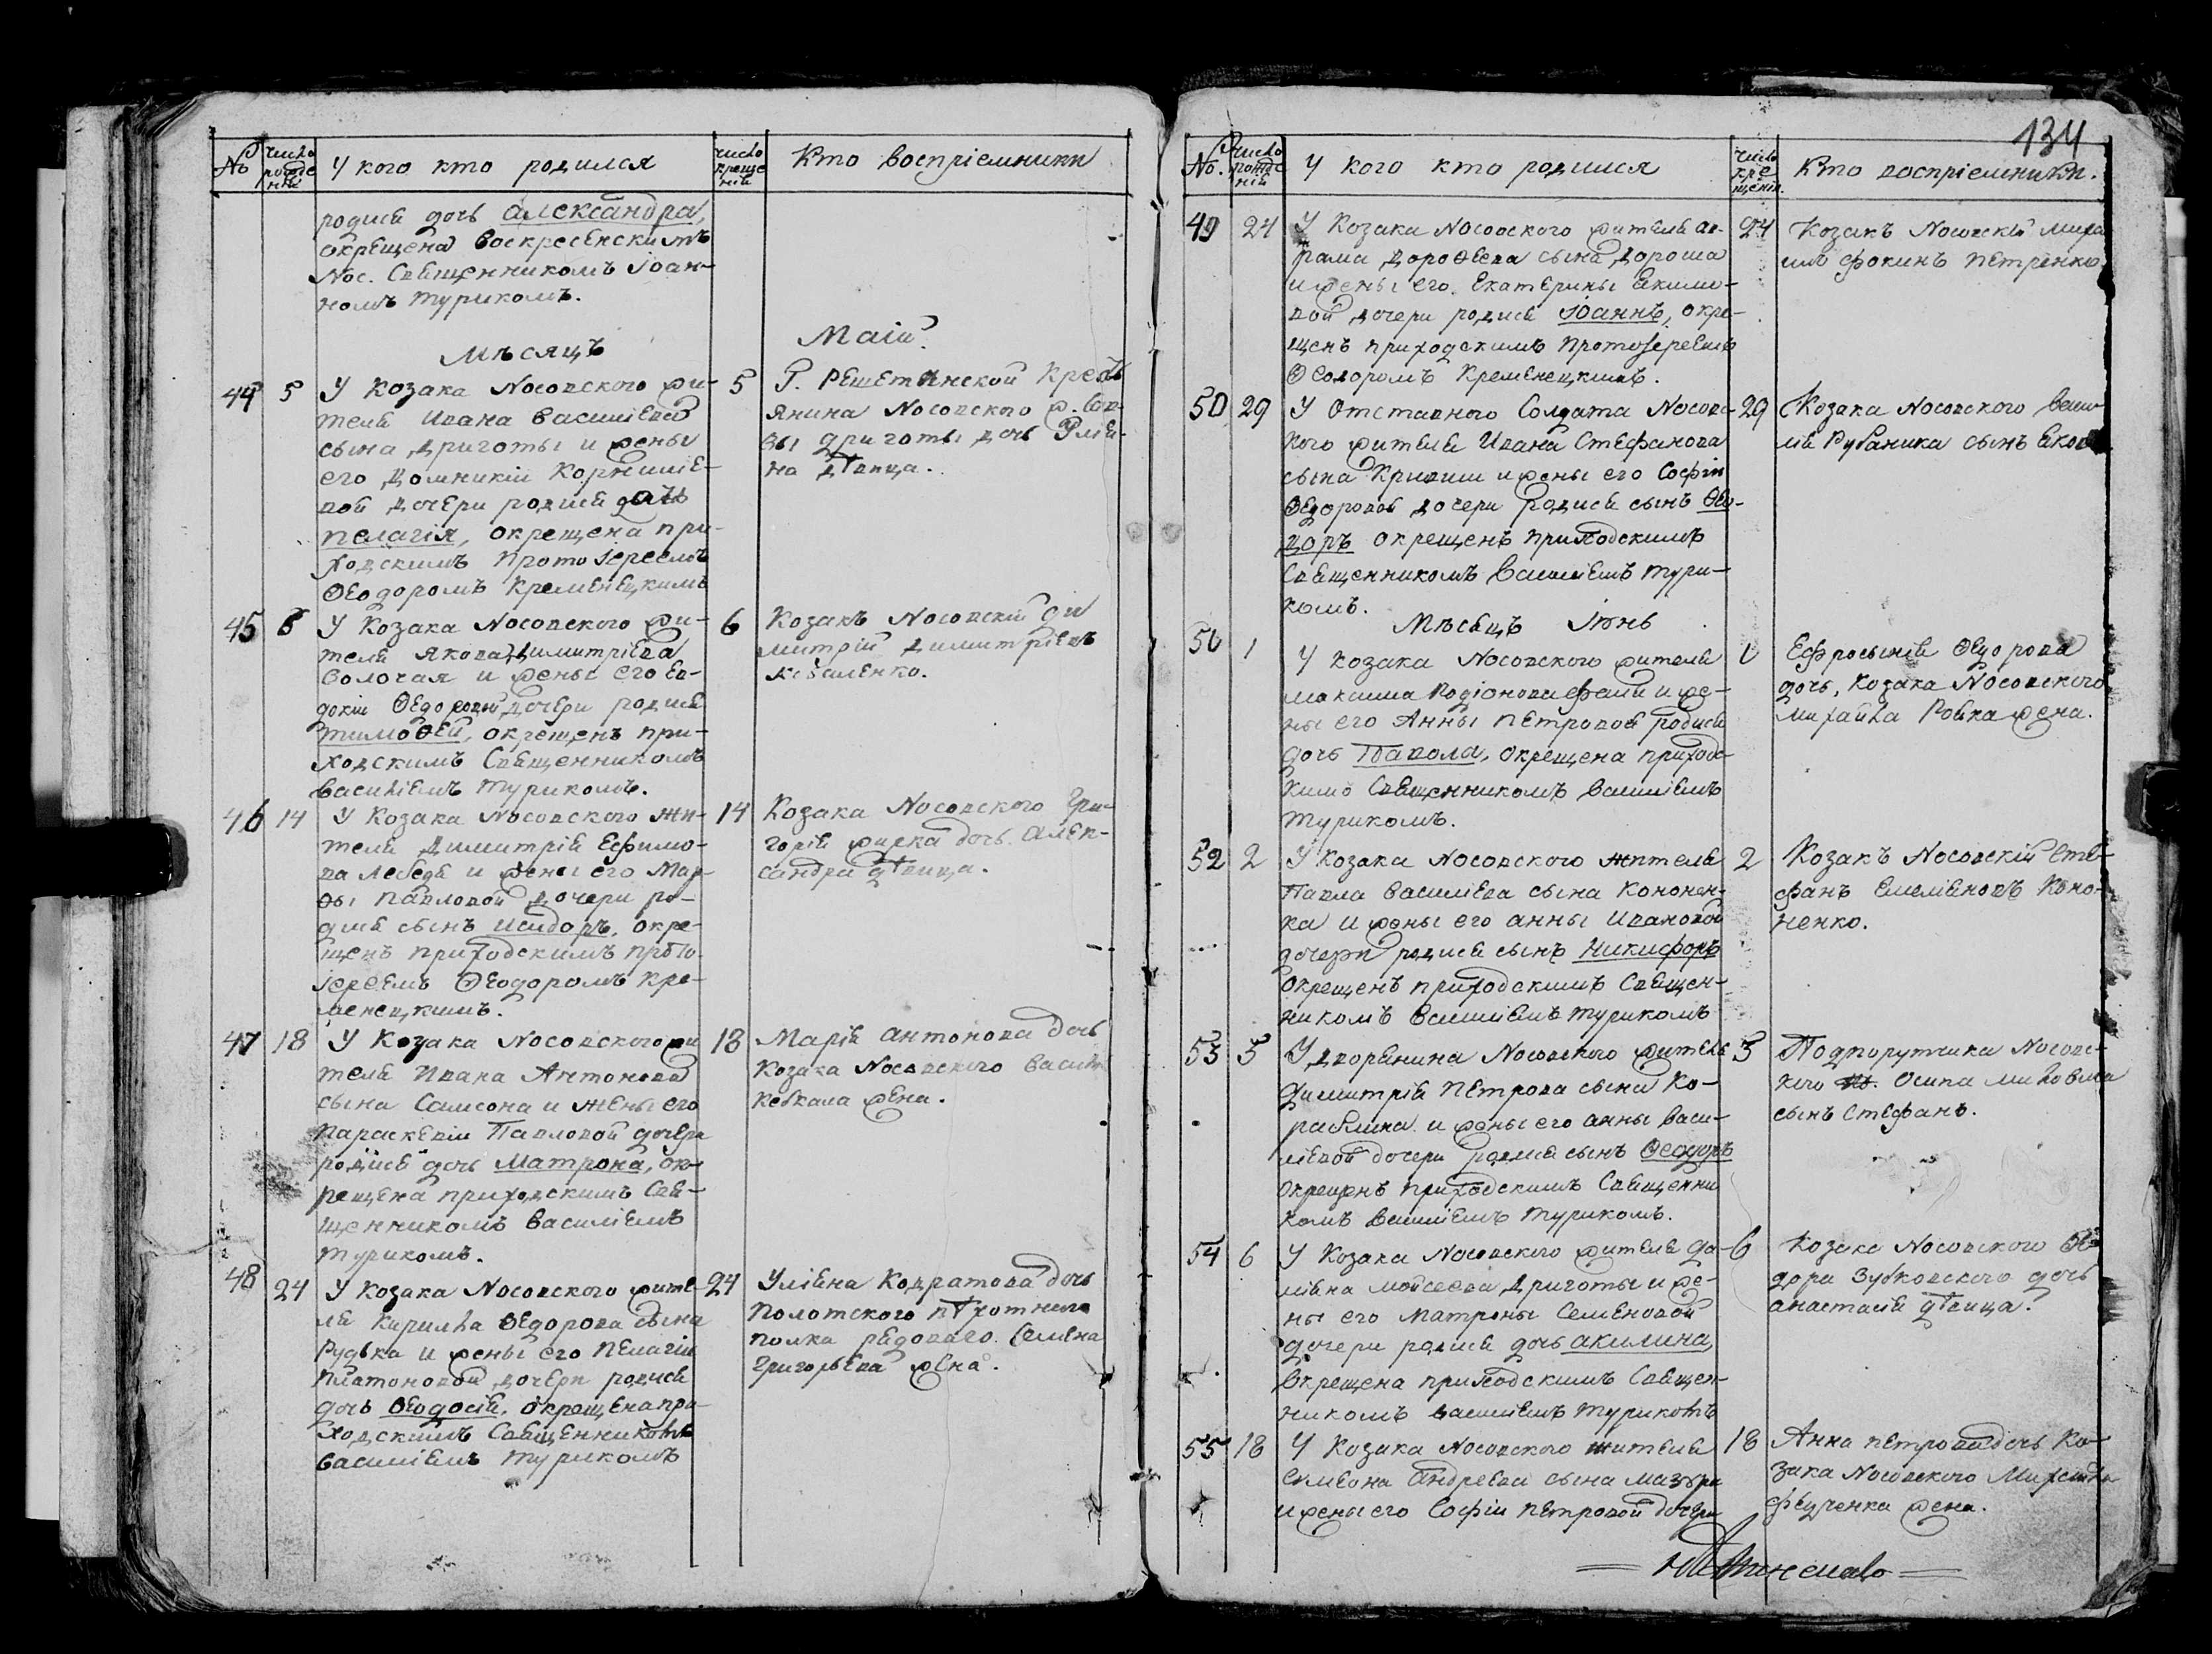 №
число рожде нія
У кого кто родился
число креще нія
Кто воспріемники
родися дочь Александра,
окрещена воскресенскимъ
Нос. Священникомъ Іоан-
номъ Турикомъ.
Мѣсяцъ Маій
44 5 У Козака Носовского жи-
теля Ивана Василіева
сына Дриготы и жены
его Домникіи Корниліе-
вой дочери родися дочь
Пелагія, окрещена при-
ходскимъ Протоіереемъ
Ѳеодоромъ Кременецкимъ
5 Г. Решетинской Крестъ
янина Носовского ж. Сав-
вы Дриготы дочь Уліа-
на дѣвица.
45 6 У Козака Носовского жи-
теля Якова Димитріева
Волочая и жены его Ев-
докіи Ѳедоровой дочери родися
Тимоѳей, окрещенъ при-
ходскимъ Священникомъ
Василіемъ Турикомъ.
6 Козакъ Носовскій Ди
митрій Димитріевъ
46 14 У Козака Носовского жи-
теля Димитрія Ефимо-
ва Лебедя и жены его Мар-
ѳы Павловой дочери ро-
дися сынъ Исидоръ, окре-
щенъ приходскимъ прото
іереемъ Ѳеодоромъ Кре-
менецкимъ.
14 Козака Носовского Гри-
горія дочь Алек-
сандра дѣвица.
47 18 У Козака Носовского жи
теля Ивана Антонова
сына Самсона и жены его
Параскевіи Павловой дочери
родися дочь Матрона, ок-
рещена приходскимъ Свя-
щенникомъ Василіемъ
Турикомъ.
18 Марія Антонова дочь
Козака Носовского Василія
Кебкала жена.
48 24 У Козака Носовского жите-
ля Кирилла Ѳедорова сына
Рудька и жены его Пелагіи
Платоновой дочери родися
дочь Ѳеодосія, окрещена при-
ходскимъ Священникомъ
Василіемъ Турикомъ
24 Уліяна Кодратова дочь
Полотского пѣхотнаго
полка рядоваго Семена
Григорьева жена.
134
№.
число рожде нія
У кого кто родился
число кре щенія
Кто воспріемники.
49 24 У Козака Носовского жителя Ав-
рама Дороѳеева сына Дороша
и жены его Екатерины Якимо-
вой дочери родися Іоаннъ, окре-
щенъ приходскимъ Протоіереемъ
Ѳеодоромъ Кременецкимъ.
24 Козакъ Носовскій Миха
илъ Фокинъ Петренко
50 29 У Отставного Солдата Носовс-
кого жителя Ивана Стефанова
сына Кривиши и жены его Софіи
Ѳедоровой дочери родися сынъ Ѳео-
доръ окрещенъ приходскимъ
Священникомъ Василіемъ Тури-
комъ.
29 Козака Носовского Васи-
лія Рубаника сынъ Яковъ
Мѣсяцъ Іюнь
51 1 У козака Носовского жителя
Максима Родіонова и же-
ны его Анны Петровой родися
дочь Павола, окрещена приходс-
кимъ Священникомъ Василіемъ
Турикомъ.
1 Ефросинія Ѳедорова
дочь, Козака Носовского
Михайла Ровка жена.
52 2 У Козака Носовского жителя
Павла Василіева сына Кононен-
ка и жены его Анны Ивановой
дочери родися сынъ Никифоръ
окрещенъ приходскимъ Священ-
никомъ Василіемъ Турикомъ
2 Козакъ Носовскій Сте-
фанъ Емеліяновъ Коно-
ненко.
53 5 У дворянина Носовского жителя
Димитрія Петрова сына Ко-
раблина и жены его Анны Васи-
ліевой дочери родися сынъ Ѳеодоръ
окрещенъ приходскимъ Священни
комъ Василіемъ Турикомъ.
5 Подпорутчика Носовс-
кого Осипа
сынъ Стефанъ.
54 6 У Козака Носовского жителя Да-
міяна Мойсеева Дриготы и же-
ны его Матроны Семеновой
дочери родися дочь Акилина,
окрещена приходскимъ Священ-
никомъ Василіемъ Турикомъ
6 Козака Носовского Ѳе
дора Зубковского дочь
Анастасія дѣвица.
55 18 У Козака Носовского жителя
Симеона Андреева сына Мазура
и жены его Софіи Петровой дочери
18 Анна Петрова дочь Ко-
зака Носовского Михайла
Федченка жена.